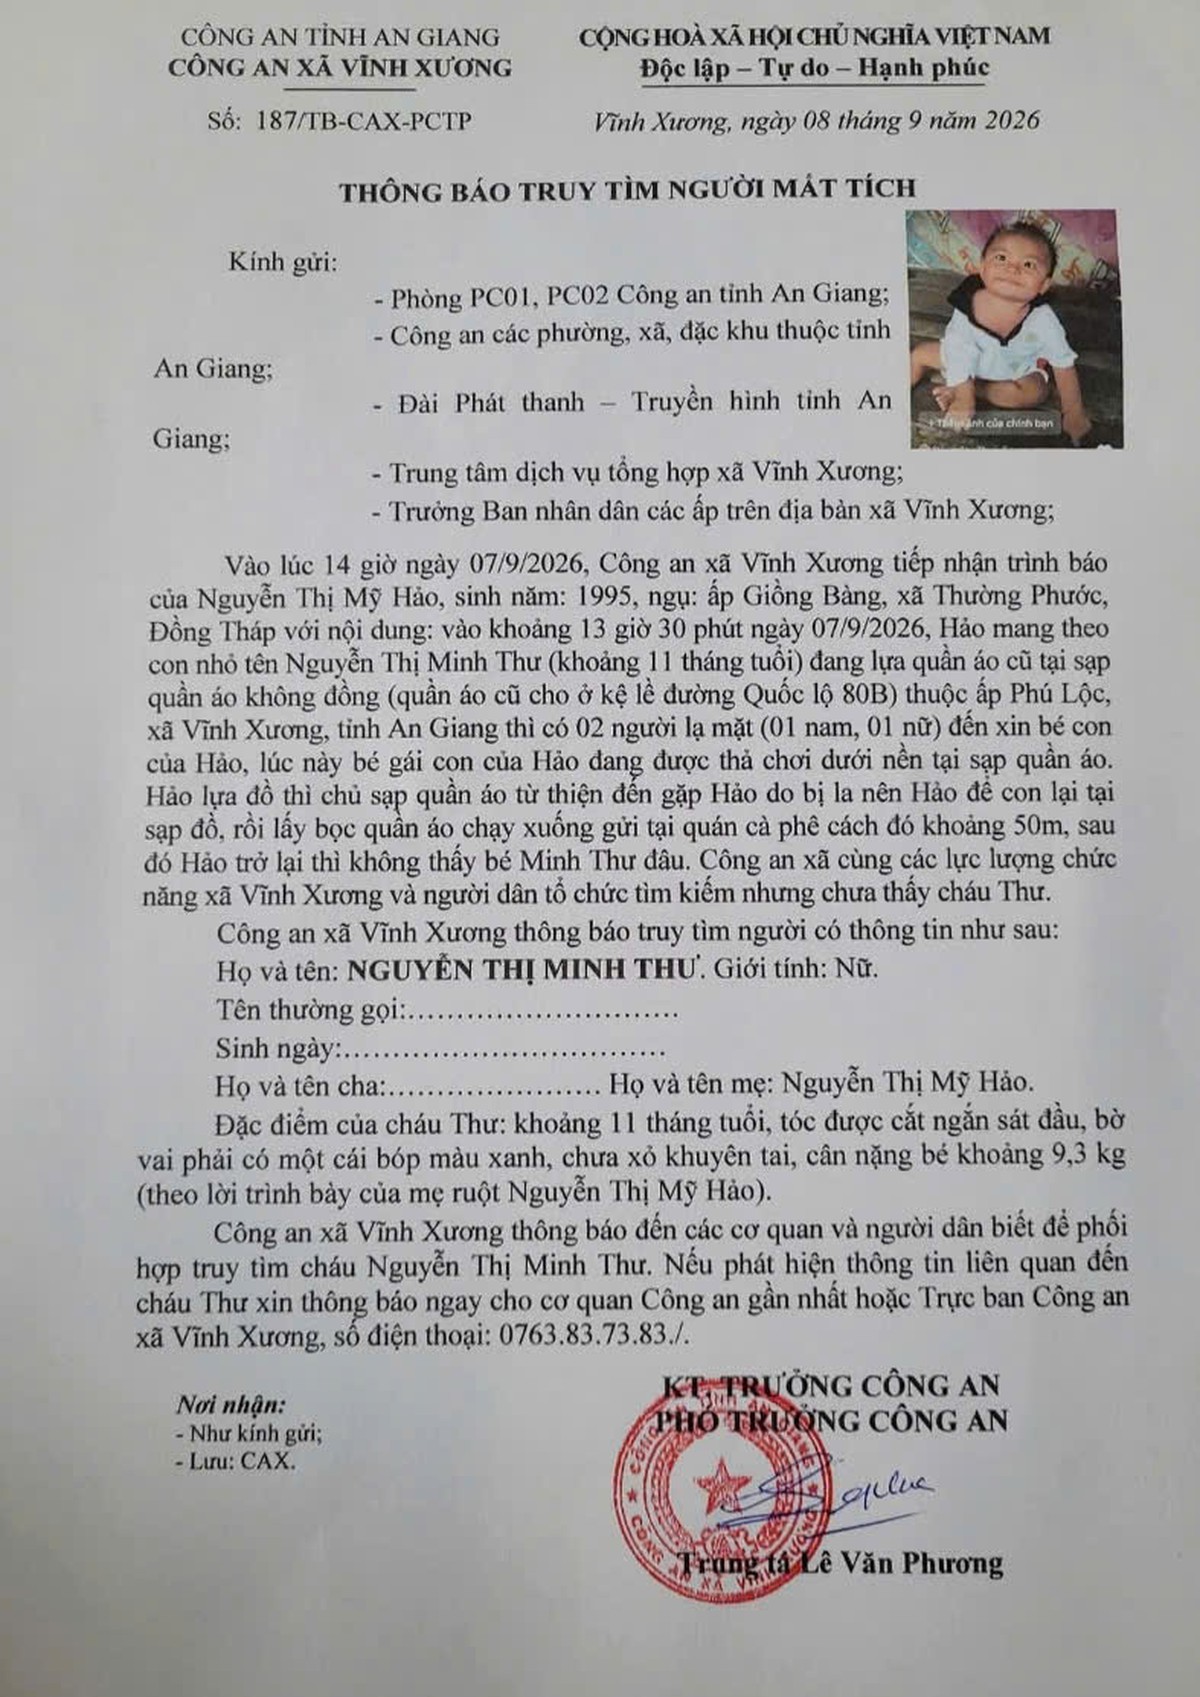 CÔNG AN TỈNH AN GIANG
CÔNG AN XÃ VĨNH XƯƠNG
CỘNG HOÀ XÃ HỘI CHỦ NGHĨA VIỆT NAM
Độc lập – Tự do – Hạnh phúc
Số: 187/TB-CAX-PCTP
Vĩnh Xương, ngày 08 tháng 9 năm 2026
THÔNG BÁO TRUY TÌM NGƯỜI MẤT TÍCH
Kính gửi:
- Phòng PC01, PC02 Công an tỉnh An Giang;
- Công an các phường, xã, đặc khu thuộc tỉnh
An Giang;
- Đài Phát thanh – Truyền hình tỉnh An
Giang;
- Trung tâm dịch vụ tổng hợp xã Vĩnh Xương;
- Trưởng Ban nhân dân các ấp trên địa bàn xã Vĩnh Xương;
ảnh của chính bạn
Vào lúc 14 giờ ngày 07/9/2026, Công an xã Vĩnh Xương tiếp nhận trình báo
của Nguyễn Thị Mỹ Hảo, sinh năm: 1995, ngụ: ấp Giồng Bàng, xã Thường Phước,
Đồng Tháp với nội dung: vào khoảng 13 giờ 30 phút ngày 07/9/2026, Hảo mang theo
con nhỏ tên Nguyễn Thị Minh Thư (khoảng 11 tháng tuổi) đang lựa quần áo cũ tại sạp
quần áo không đồng (quần áo cũ cho ở kệ lề đường Quốc lộ 80B) thuộc ấp Phú Lộc,
xã Vĩnh Xương, tỉnh An Giang thì có 02 người lạ mặt (01 nam, 01 nữ) đến xin bé con
của Hảo, lúc này bé gái con của Hảo đang được thả chơi dưới nền tại sạp quần áo.
Hảo lựa đồ thì chủ sạp quần áo từ thiện đến gặp Hảo do bị la nên Hảo để con lại tại
sạp đồ, rồi lấy bọc quần áo chạy xuống gửi tại quán cà phê cách đó khoảng 50m, sau
đó Hảo trở lại thì không thấy bé Minh Thư đâu. Công an xã cùng các lực lượng chức
năng xã Vĩnh Xương và người dân tổ chức tìm kiếm nhưng chưa thấy cháu Thư.
Công an xã Vĩnh Xương thông báo truy tìm người có thông tin như sau:
Họ và tên: NGUYỄN THỊ MINH THƯ. Giới tính: Nữ.
Tên thường gọi:............................
Sinh ngày:.................................
Họ và tên cha:...................... Họ và tên mẹ: Nguyễn Thị Mỹ Hảo.
Đặc điểm của cháu Thư: khoảng 11 tháng tuổi, tóc được cắt ngắn sát đầu, bờ
vai phải có một cái bóp màu xanh, chưa xỏ khuyên tai, cân nặng bé khoảng 9,3 kg
(theo lời trình bày của mẹ ruột Nguyễn Thị Mỹ Hảo).
Công an xã Vĩnh Xương thông báo đến các cơ quan và người dân biết để phối
hợp truy tìm cháu Nguyễn Thị Minh Thư. Nếu phát hiện thông tin liên quan đến
cháu Thư xin thông báo ngay cho cơ quan Công an gần nhất hoặc Trực ban Công an
xã Vĩnh Xương, số điện thoại: 0763.83.73.83./.
Nơi nhận:
- Như kính gửi;
- Lưu: CAX.
KT. TRƯỞNG CÔNG AN
PHÓ TRƯỞNG CÔNG AN
CÔNG AN TỈNH AN GIANG
CÔNG AN XÃ VĨNH XƯƠNG
Trung tá Lê Văn Phương